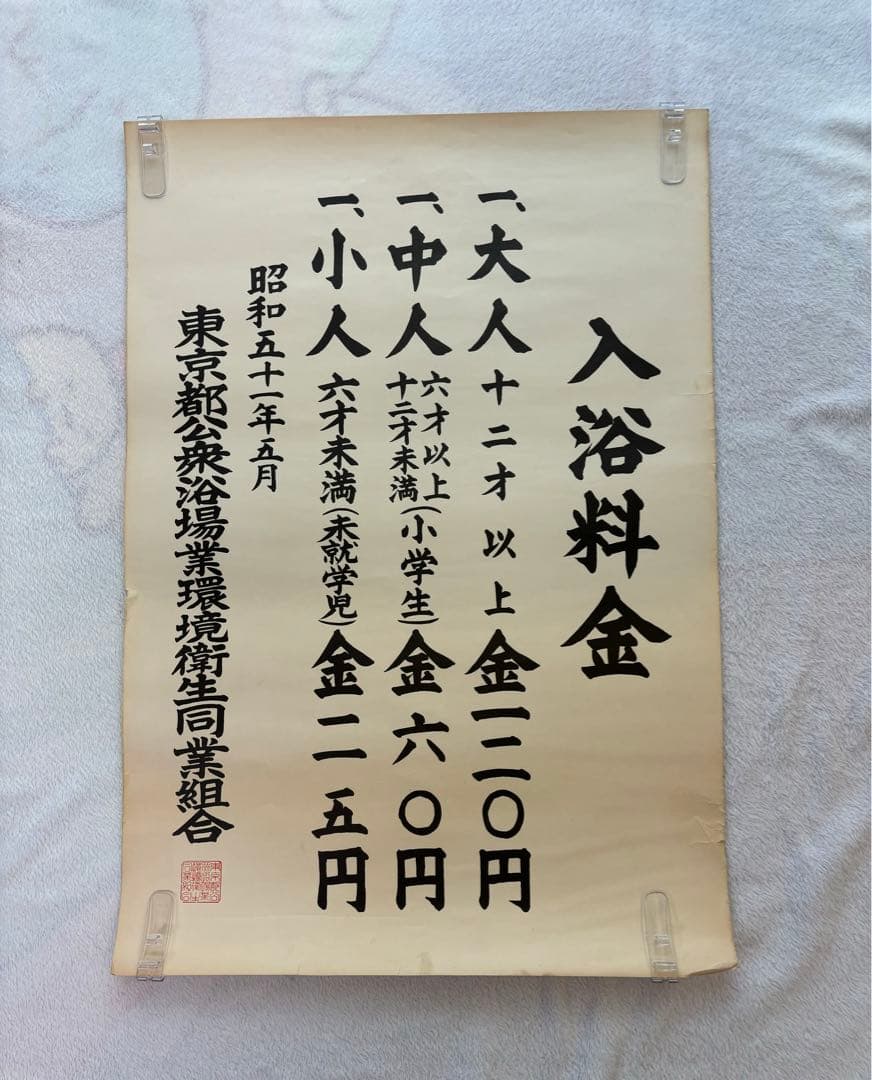 入浴料金
一、大人 十二才以上 金一二〇円
一、中人 六才以上十二才未満(小学生) 金六〇円
一、小人 六才未満(未就学児) 金二五円
昭和五十一年五月
東京都公衆浴場業環境衛生同業組合